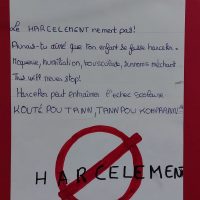 Le HARCELEMENT n'ement pas!
Aimais-tu aimé que ton enfant se fasse harceler.
Moquerie, humiliation, bousculade, surnoms méchant
That will never stop!
Harceler peut entraîner l'échec scolaire
KOUTÉ POU TANN, TANN POU KOMPRANN!
HARCELEMEN